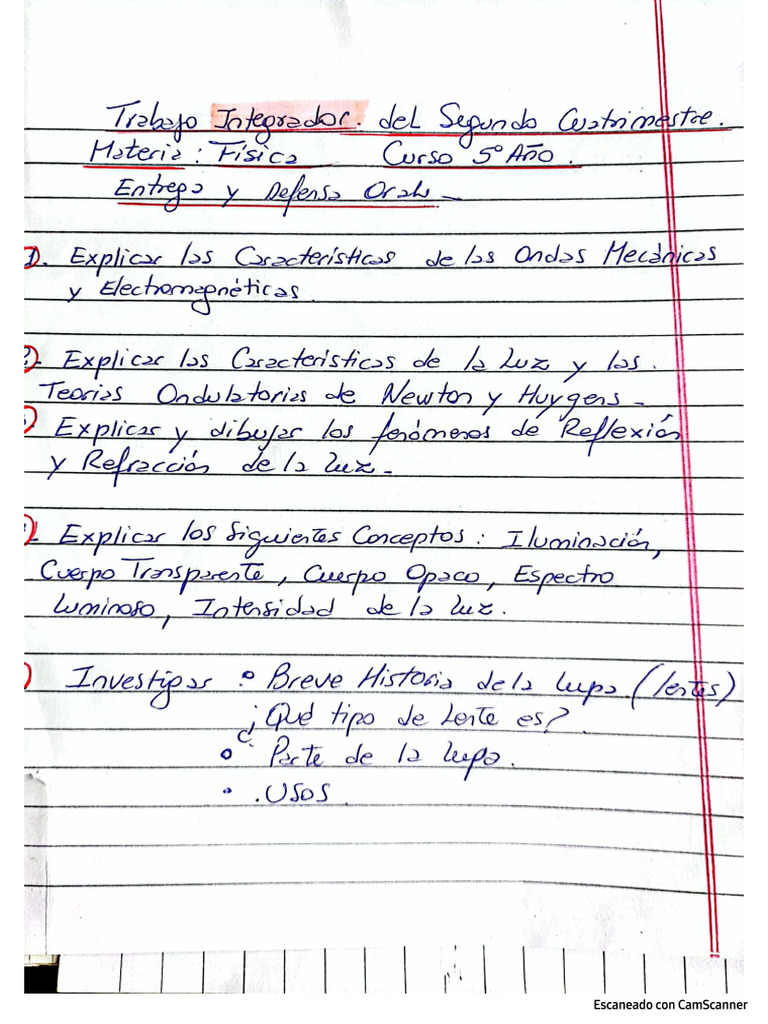 Trabajo Integrador. del Segundo Cuatrimestre.
Materia: Física Curso 5º Año.
Entrega y Defensa Oral
1). Explicar las Características de las Ondas Mecánicas
y Electromagnéticas.
2) Explicar las Características de la Luz y las.
Teorías Ondulatorias de Newton y Huygens -
) Explicar y dibujar los fenómenos de Reflexión
y Refracción de la luz -
) Explicar los Siguientes Conceptos: Iluminación,
Cuerpo Transparente, Cuerpo Opaco, Espectro
luminoso, Intensidad de la luz.
) Investigar • Breve Historia de la lupa (lentes)
¿Qué tipo de lente es?
• Parte de la lupa.
• .USOS
Escaneado con CamScanner